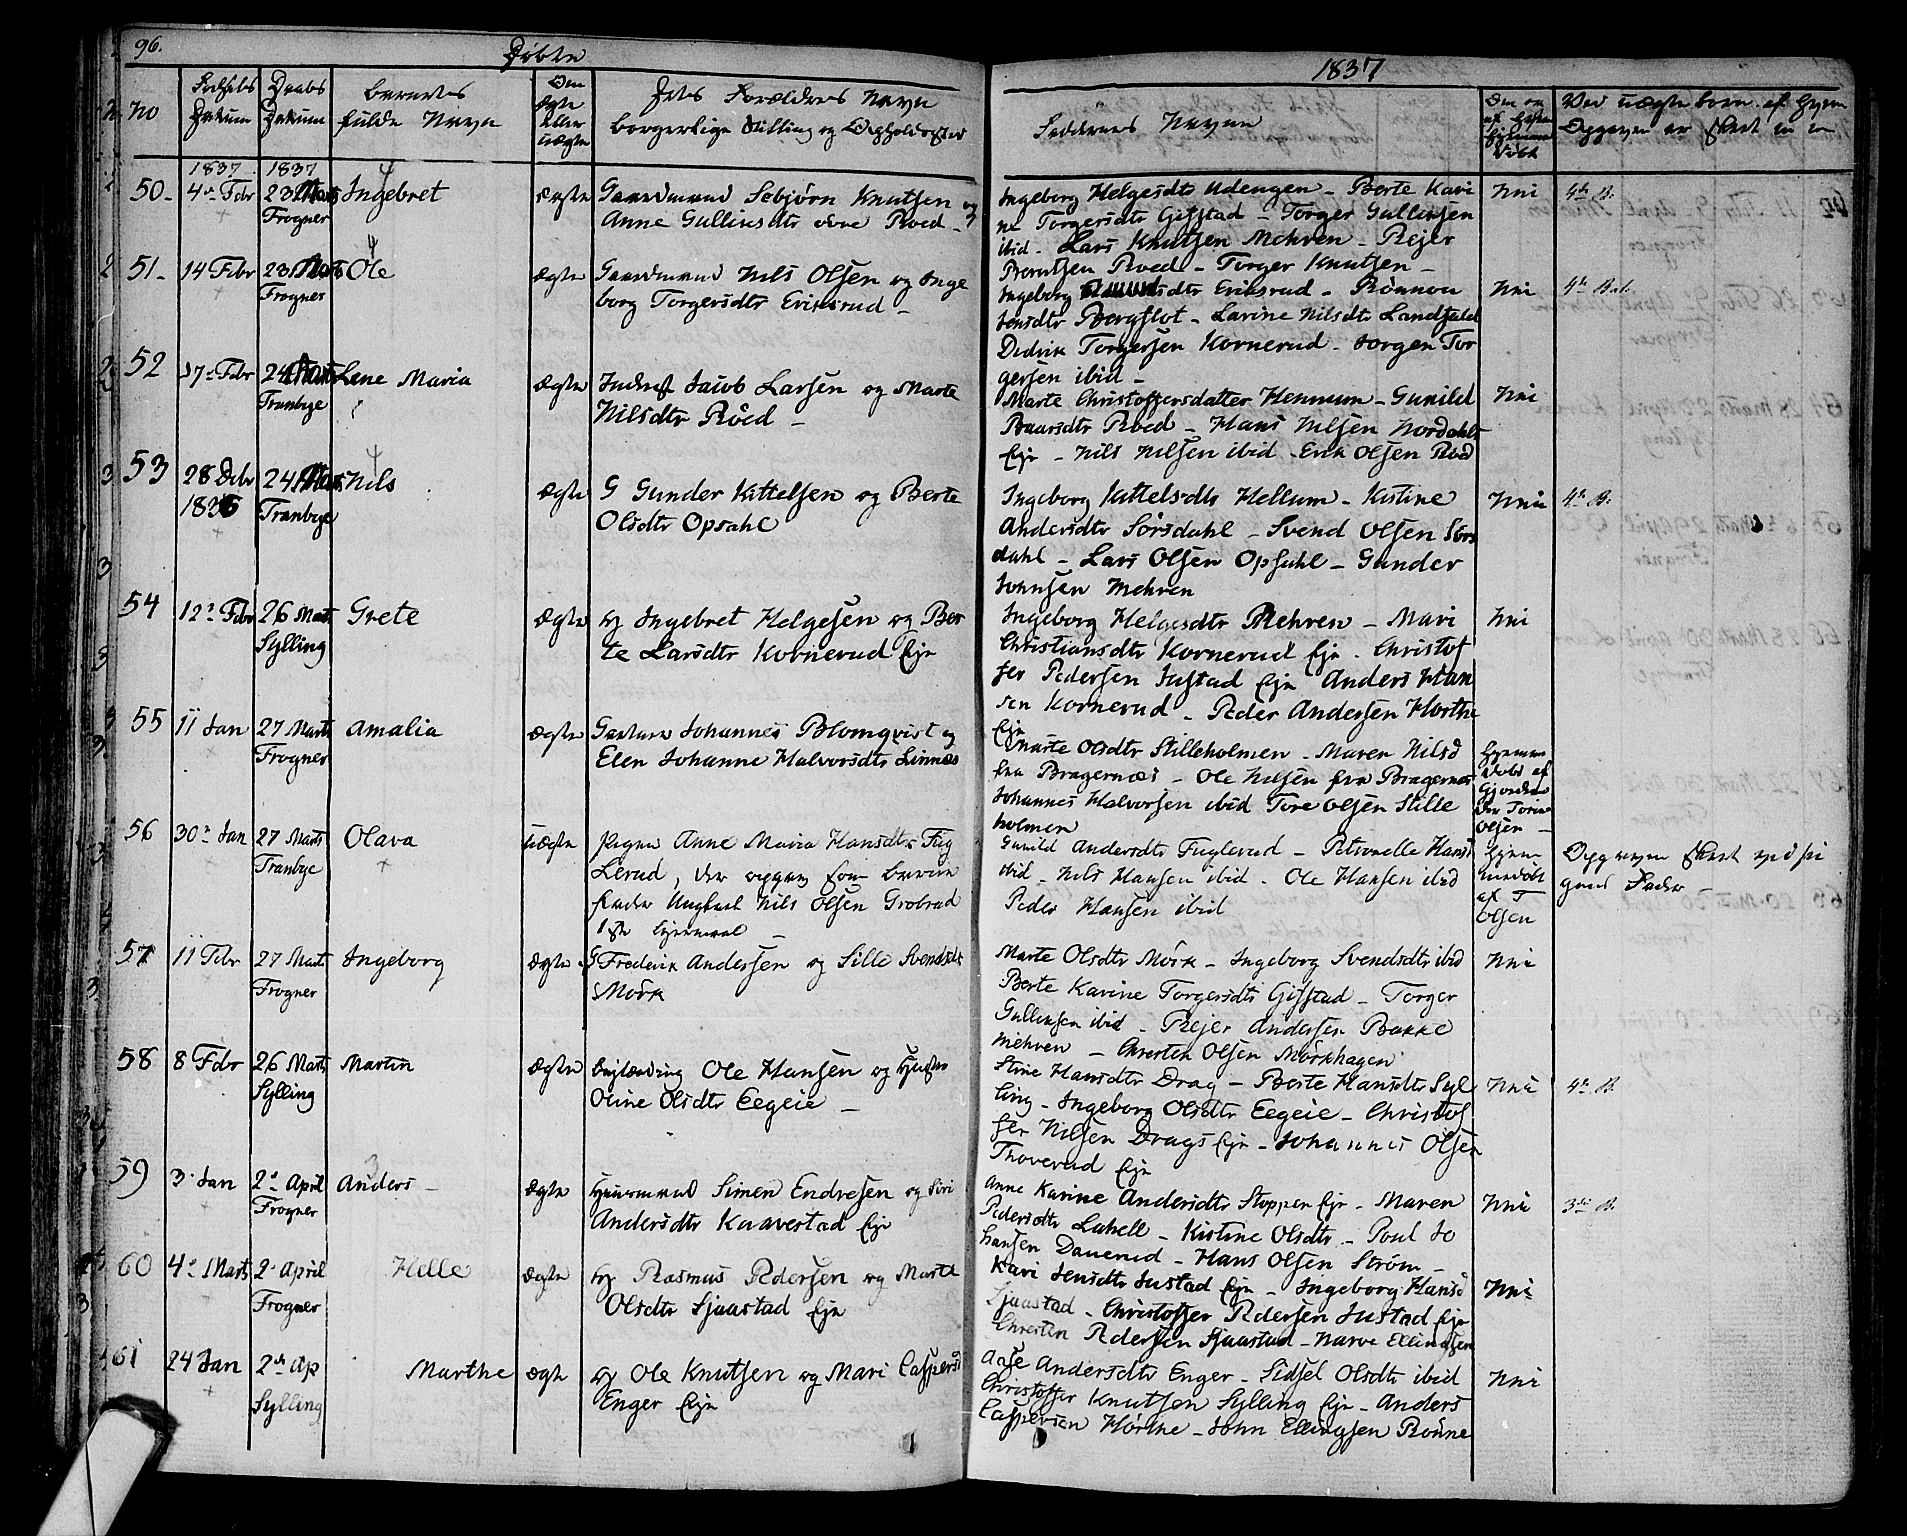 96.
Døbte
1837
No
Fødsels Datum
Daabs Datum
Barnets fulde Navn
Om ægte eller uægte
Forældrenes Navn
borgerlige Stilling og Opholdssted
Faddernes Navne
1837 1837
50 4de Febr 23 Marts Ingebret ægte Gaardmand Sebjørn Knutsen og
Frogner
Anne Gulliksdtr Roed
Ingeborg Helgesdtr Udengen - Berte Kari
ne Torgersdtr Gifstad - Torger Gullinsen
ibid - Lars Knutsen Mehren - Rejer
Berntsen Roed - Torger Knutsen
Nei 4de B.
51 14 Febr 23 Marts Ole ægte Gaardmand Nils Olsen og Inge
Frogner
borg Torgersdtr Eriksrud
Ingeborg Eriksrud - Rønnou
Jensdtr Bergflot - Larine Nilsdtr Landfald
Didrik Torgersen Kornerud - Jørgen Tor
gersen ibid
Nei
52 17de Febr 24 Marts Lene Maria ægte Inderst Jacob Larsen og Marte
Tranbye
Nilsdtr Röed
Marte Christoffersdatter Hennum - Gunild
Baarsdtr Roed - Hans Nilsen Nordahls
Eje - Nils Nilsen ibid - Erik Olsen Röed
Nei
53 28 Debr 24 Marts Nils ægte G Gunder Kittelsen og Berte
1836 Tranbye
Olsdtr Opsahl
Ingeborg Kittelsdtr Hellum - Kistine
Andersdtr Sørsdahl - Svend Olsen Sørs
dahl - Lars Olsen Opsahl - Gunder
Johnsen Mehren
Nei 4de B.
54 12te Febr 26 Marts Grete ægte Hj Ingebret Helgesen og Ber
Sylling
te Larsdtr Kornerud Eje
Ingeborg Helgesdtr Mehren - Mari
Christiansdtr Kornerud Eje - Christof
fer Pedersen Justad Eje Anders Han
sen Kornerud - Peder Andersen Horthe
Eje
Nei
55 11 Jan 27 Marts Amalia ægte Johannes Blomqvist og
Frogner
Elen Johanne Halvorsdtr Linnes
Marte Olsdtr Stilleholmen - Maren Nilsd
fra Bragernæs - Ole Nilsen fra Bragernæs
Johannes Halvorsen ibid Tore Olsen Stille
holmen
Hjemmedøbt af
Tore
Olsen
56 30te Jan 27 Marts Olava uægte Pigen Anne Maria Hansdtr Fug
Tranbye
lerud, der opgav som Barne
fader Ungkarl Nils Olsen Grobrud
1ste Lejermaal
Gunild Andersdtr Fuglerud - Petronelle Hansd
ibid - Nils Hansen ibid - Ole Hansen ibid
Peder Hansen ibid
Hjemmedøbt
af T
Olsen
57 11 Febr 27 Marts Ingeborg ægte G Frederik Andersen og Sille Svendsdtr
Frogner
Mörk
Marte Olsdtr Mörk - Ingeborg Svendsdtr ibid
Berte Karine Torgersdtr Gifstad - Torger
Gullinsen ibid - Rejer Andersen Bakke
Mehren - Chresten Olsen Mörkhagen
Nei
58 8 Febr 26 Marts Martin ægte Ole Hansen og Hustru
Sylling
Oline Olsdtr Eegeie
Stine Hansdtr Drag - Berte Hansdtr Syl
ling - Ingeborg Olsdtr Eegeie - Christof
fer Nilsen Drags Eje - Johannes Olsen
Thoverud Eje
Nei 4de B.
59 3 Jan 2 April Anders ægte Huusmand Simen Endresen og Siri
Frogner
Andersdtr Kaavestad Eje
Anne Karine Andersdtr Stoppen Eje - Maren
Pedersdtr Lahell - Kistine Olsdtr - Poul Jo
hansen Dauerud - Hans Olsen Strøm
Nei 3de B.
60 4de Marts 2 April Helle ægte Hj Rasmus Pedersen og Marte
Frogner
Olsdtr Sjaastad Eje
Kari Jensdtr Justad Eje - Ingeborg Hansd
Sjaastad - Christoffer Pedersen Justad Eje
Chresten Pedersen Sjaastad - Narve Ellingsen
Nei
61 24 Jan 2den Ap Marthe ægte Hj Ole Knutsen og Mari Caspersd
Sylling
Enger Eje
Aase Andersdtr Enger - Sidsel Olsdtr ibid
Christoffer Knutsen Sylling Eje - Anders
Caspersen Hörthe - John Ellingsen Rönne
Nei